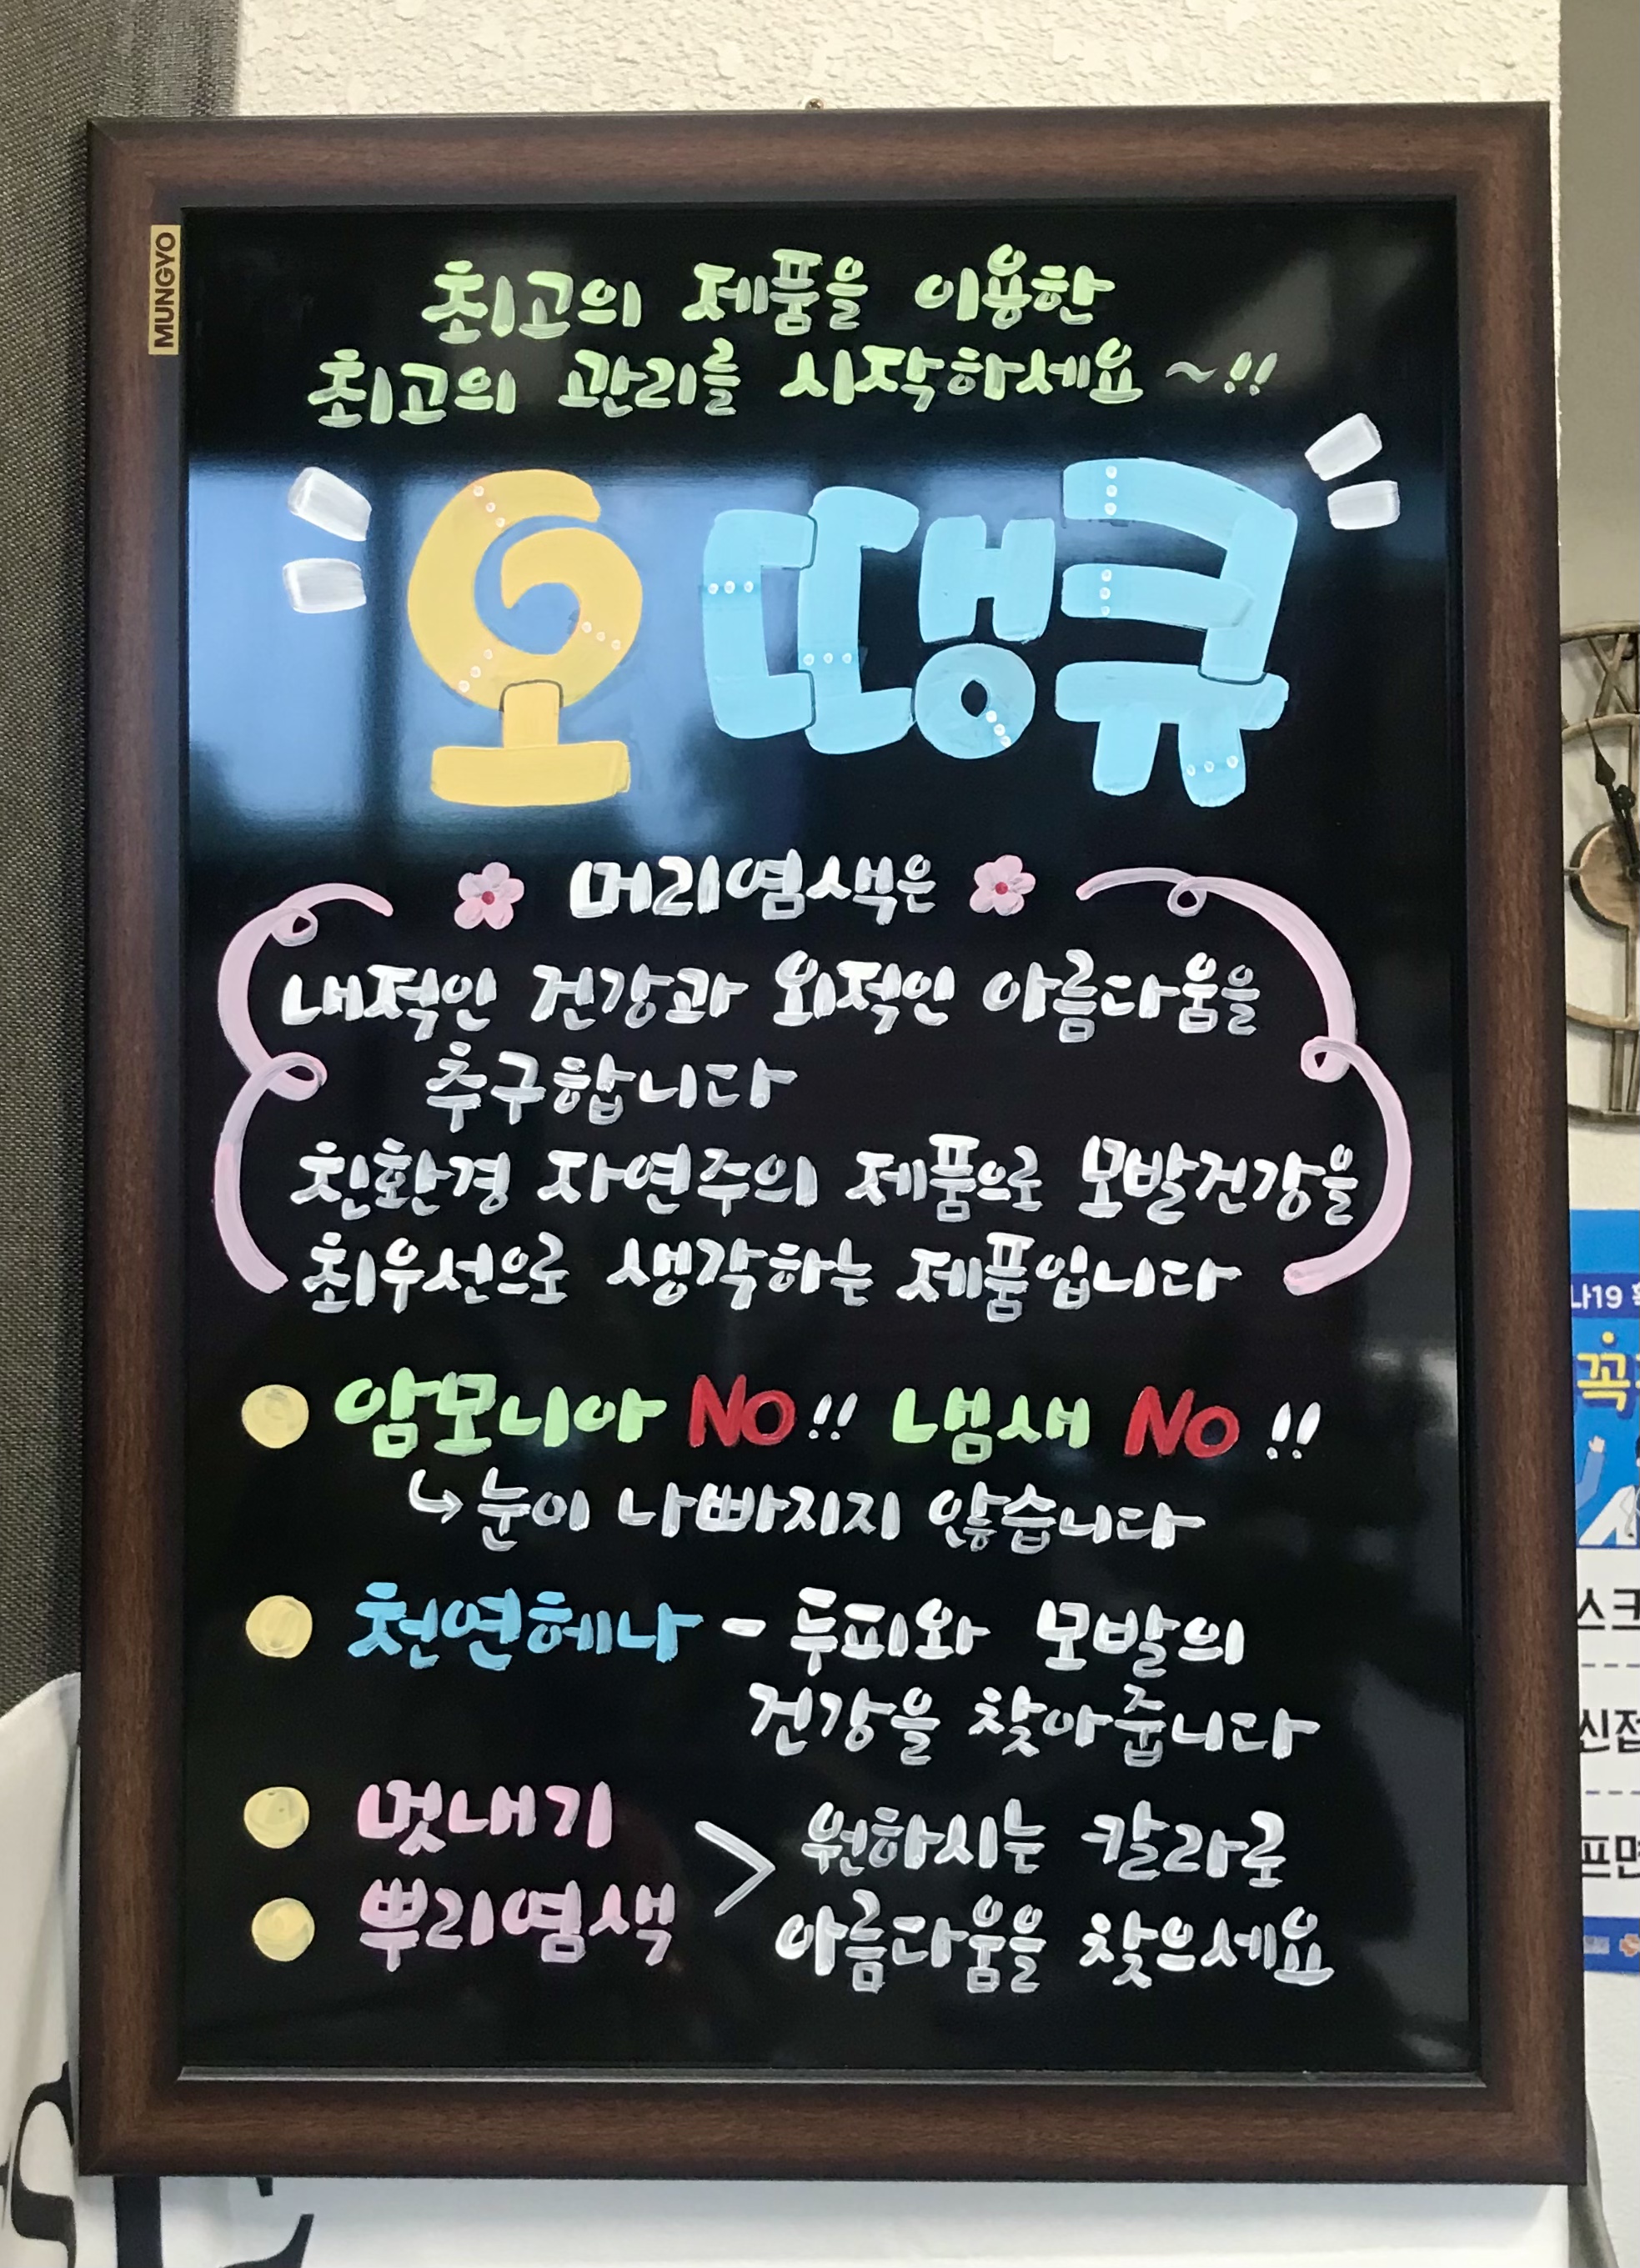 MUNGYO
최고의 제품을 이용한
최고의 관리를 시작하세요~!!
오 땡큐
머리염색은
내적인 건강과 외적인 아름다움을
추구합니다
친환경 자연주의 제품으로 모발건강을
최우선으로 생각하는 제품입니다
암모니아 NO!! 냄새 NO!!
↳눈이 나빠지지 않습니다
천연헤나 - 두피와 모발의
건강을 찾아줍니다
멋내기
뿌리염색
> 원하시는 칼라로
아름다움을 찾으세요
나19